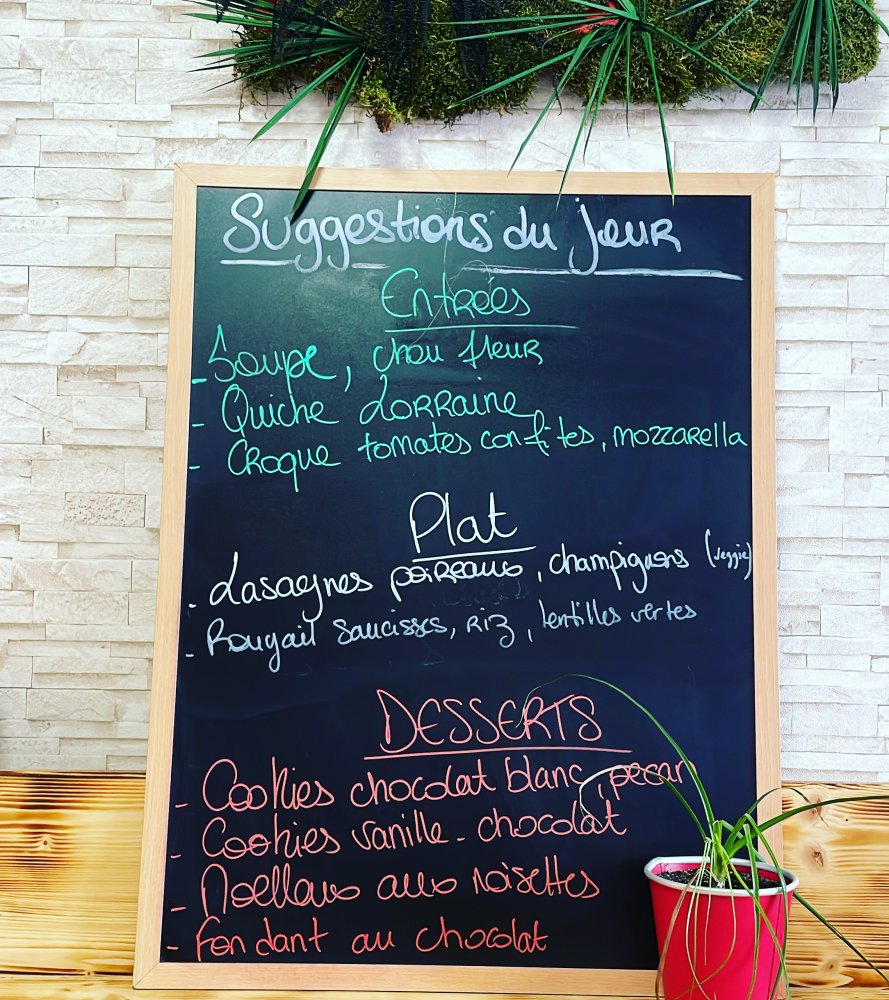 Suggestions du jour
Entrées
- Soupe, chou fleur
- Quiche Lorraine
- Croque tomates confites, mozzarella
Plat
- Lasagnes poireaux, champignons (veggie)
- Rougail saucisses, riz, lentilles vertes
DESSERTS
- Cookies chocolat blanc, pecan
- Cookies vanille - chocolat
- Moelleux aux noisettes
- Fondant au chocolat